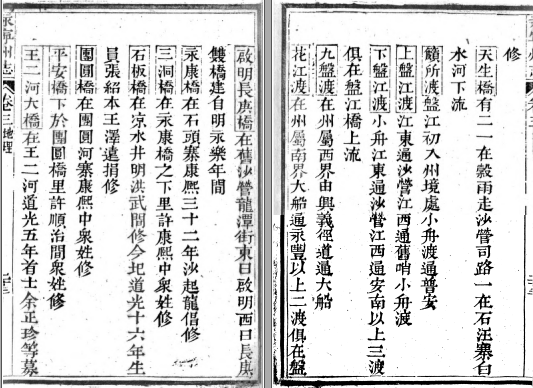 啟明長庚橋在舊沙營龍潭街東曰啟明西曰長庚
雙橋建自明永樂年間
永康橋在石頭寨康熙三十二年沙起龍倡修
三洞橋在永康橋之下里許康熙中衆姓修
石板橋在涼水井明洪武間修今圮道光十六年生
員張紹本王澤遠捐修
團圓橋在團圓河寨康熙中衆姓修
平安橋下於團圓橋里許順治間衆姓修
王二河大橋在王二河道光五年首士余正珍等募
永寧州志 卷之三 地理
修
天生橋有二一在穀雨走沙營司路一在石汪寨白
水河下流
籟所渡盤江初入州境處小舟渡通普安
上盤江渡江東通沙營江西通舊哨小舟渡
下盤江渡小舟江東通沙營江西通安南以上三渡
俱在盤江橋上流
九盤渡在州屬西界由興義徑道通大船
花江渡在州屬南界大船通永豐以上二渡俱在盤